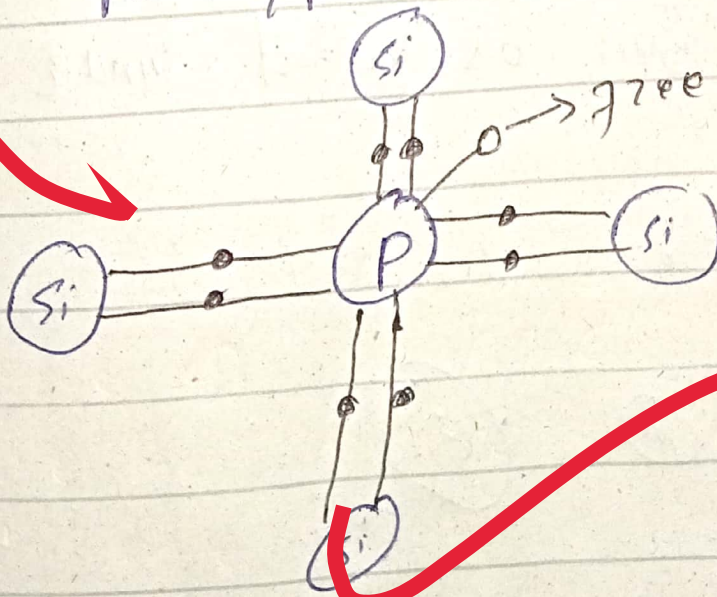 Si
free
Si
P
Si
Si